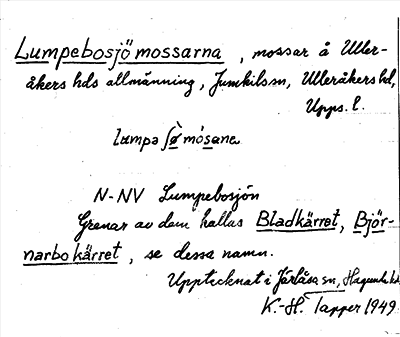 Lumpebosjömossarna, mossar å Uller-
åkers hds allmänning, Jumkils sn, Ulleråkers hd,
Upps. l.
lampə ʃø̀ mósana
N-NV Lumpebosjön
Grenar av dem kallas Bladkärret, Björ-
narbokärret, se dessa namn.
Upptecknat i Järlåsa sn, Hagunda hd
K.-H. Tapper 1949